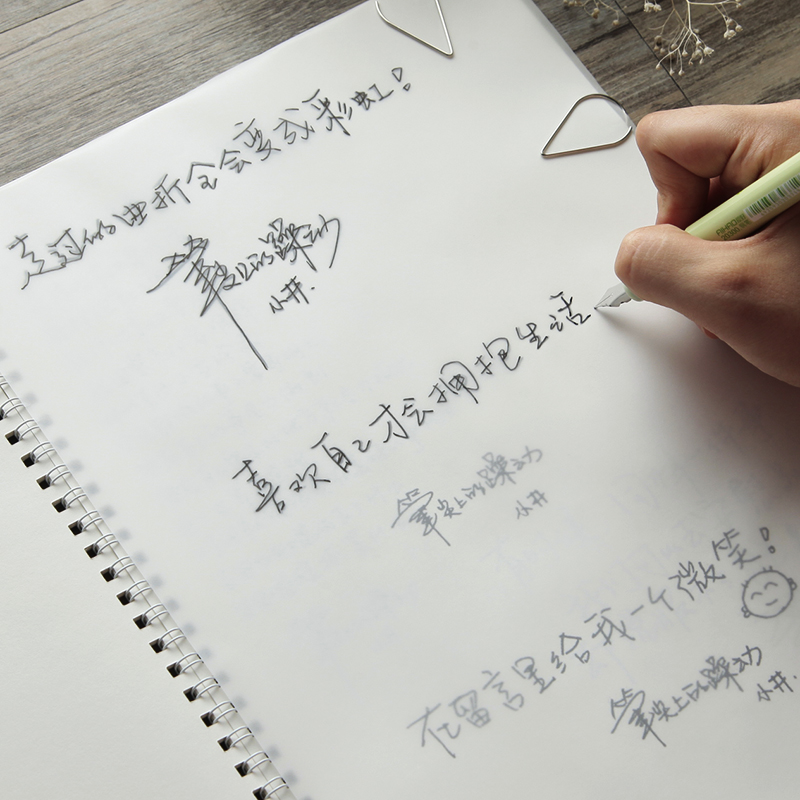 走过的曲折全会变成彩虹!
笔尖上的躁动
小井.
喜欢自己才会拥抱生活
笔尖上的躁动
小井
在留言里给我一个微笑!
笔尖上的躁动
小井.